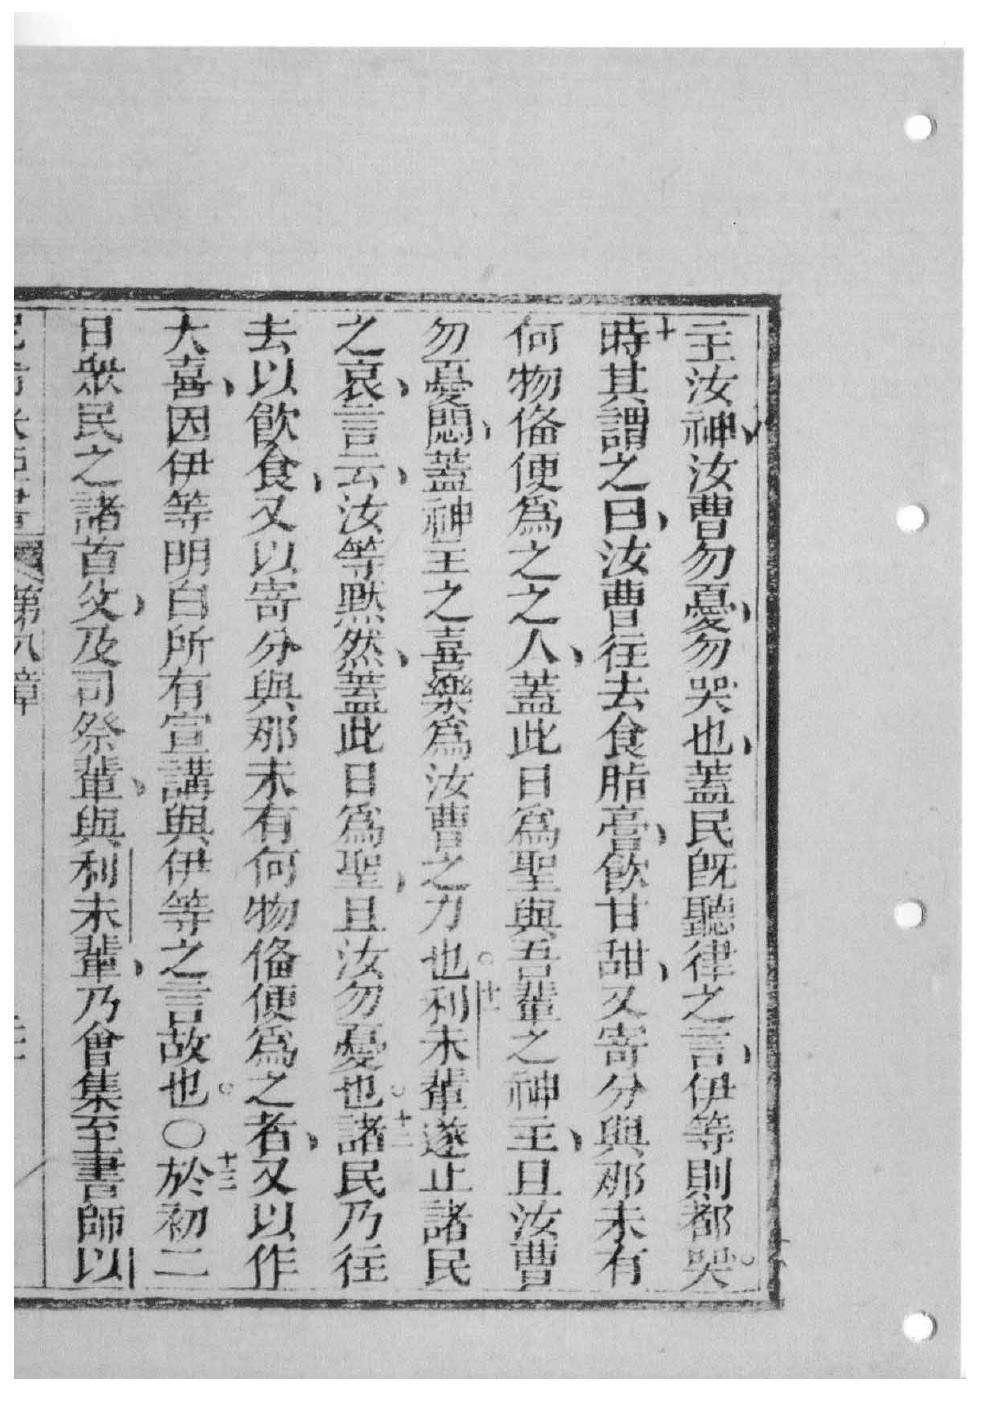 主汝神、汝曹勿憂、勿哭也、蓋民旣聽律之言、伊等則都哭。
十時其謂之曰、汝曹往去食脂膏、飮甘甜、又寄分與那未有
何物俻便爲之之人、蓋此日爲聖與吾輩之神主、且汝曹
勿憂悶、蓋神主之喜樂爲汝曹之力也。十一利未輩遂止諸民
之哀、言云、汝等默然、蓋此日爲聖、且汝勿憂也。十二諸民乃往
去以飮食、又以寄分與那未有何物俻便爲之者、又以作
大喜、因伊等明白所有宣講與伊等之言故也。〇十三於初二
日衆民之諸首父、及司祭輩、與利未輩、乃會集至書師以
第八章